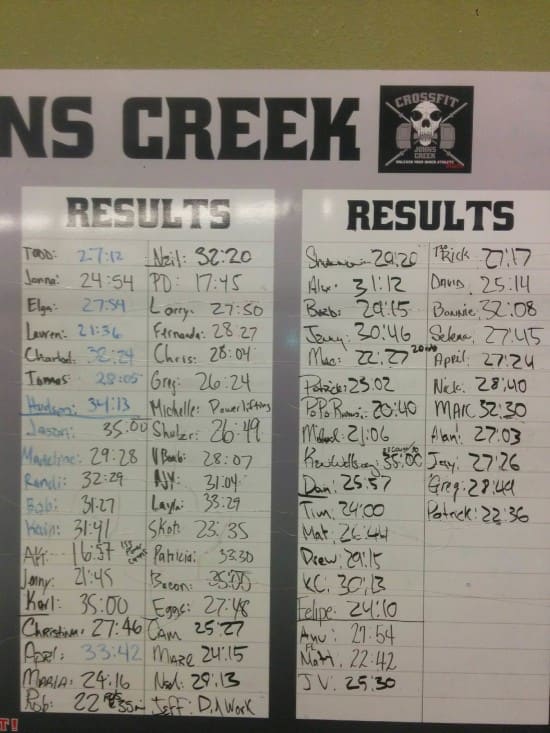 NS CREEK
CROSSFIT
JOHNS
CREEK
UNLEASH YOUR INNER ATHLETE
RESULTS
TODD: 27:12
Janna: 24:54
Elga: 27:54
Lauren: 21:36
Charbel: 32:24
Tomas 28:05
Hudson: 34:13
Jason: 35:00
Madeline: 29:28
Randi: 32:29
Bob: 31:27
Kain: 31:41
AK: 16:57
Jenny: 21:45
Karl: 35:00
Christina: 27:46
April: 33:42
MARIA: 24:16
Rob: 22
Neil: 32:20
PD: 17:45
Lorry: 27:50
Fernanda: 28:27
Chris: 28:04
Greg: 26:24
Michelle: Powerlifting
Shuler: 26:49
VBomb: 28:07
NY: 31:04
Layla: 33:29
Skot: 23:35
Patricia: 33:30
Bacon: 35:00
Eggs: 27:48
CAM 25:27
MARE 24:15
Neal: 29:13
Jeff: Did Work
RESULTS
29:20
Alex: 31:12
Barb: 29:15
Jerry: 30:46
Mac: 22:27
Patrick: 23:02
PoPo 20:40
21:06
35:00
Dan: 25:57
Tim: 24:00
Mat: 26:44
Drew: 29:15
KC: 30:13
Felipe: 24:10
Anu: 27:54
FL
Matt: 22:42
JV: 25:30
The Rick 27:17
DAVID 25:14
Bonnie 32:08
Selena 27:45
April: 27:24
Nick: 28:40
MARC 32:30
Alan: 27:03
Jay: 27:26
Greg: 28:44
Patrick: 22:36
T!